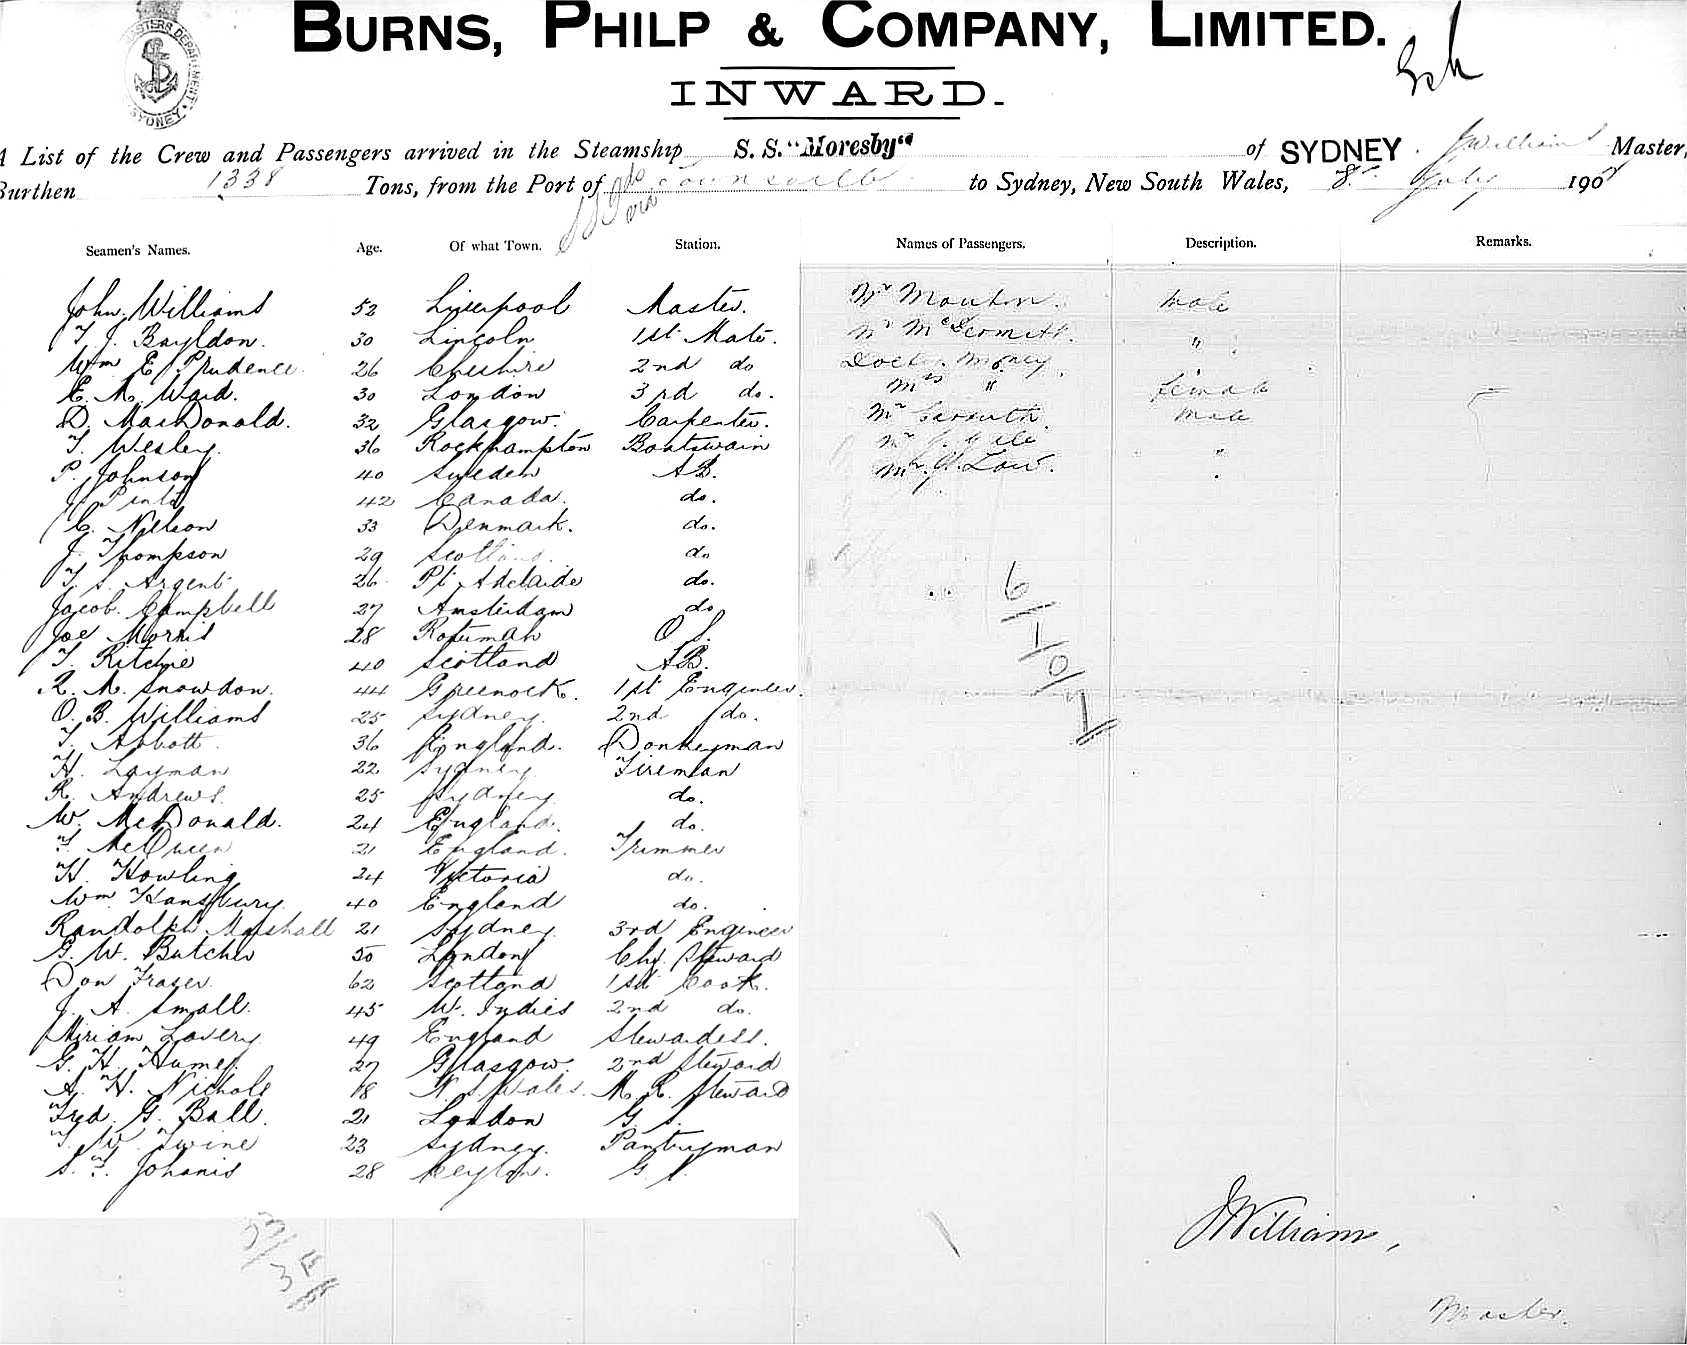 BURNS, PHILP & COMPANY, LIMITED.
INWARD.
SYDNEY
A List of the Crew and Passengers arrived in the Steamship S.S. "Moresby" of SYDNEY. J Williams Master,
Burthen 1338 Tons, from the Port of Townsville to Sydney, New South Wales, 8th July 190
via
Seamen's Names. Age. Of what Town. Station. Names of Passengers. Description. Remarks.
John Williams 52 Liverpool Master. Mr Moulton. Male
T. J. Bayldon. 30 Lincoln 1st Mate. Mr McDermott. "
Wm E. Prudence 26 Cheshire 2nd do Doctor Money
E. M. Ward. 30 London 3rd do. Mrs " Female
D. MacDonald. 32 Glasgow. Carpenter. Mr Carruth. Male
T. Wesley. 36 Rockhampton Boatswain Mr "
P. Johnson 40 Sweden AB. Mr Law. "
J. Pinto 42 Canada. do.
C. Nielson 33 Denmark. do.
J. Thompson 29 Scotland. do
T. S. Argent 26 Pt Adelaide do.
Jacob. Campbell 27 Amsterdam do
Joe Morris 28 Rotumah O S.
T. Ritchie 40 Scotland AB.
R. M. Snowdon. 44 Greenock. 1st Engineer.
O. B. Williams 25 Sydney. 2nd do.
T. Abbott. 36 England. Donkeyman
H. Layman 22 Sydney Fireman
R. Andrews. 25 Sydney do.
W. McDonald. 24 England. do.
T. McQueen 21 England. Trimmer
H. Howling 24 Victoria do.
Wm Hansbury. 40 England do.
Randolph Marshall 21 Sydney. 3rd Engineer
G. W. Butcher 50 London Chf. Steward
Don Fraser. 62 Scotland 1st Cook.
J. A. Small. 45 W. Indies 2nd do.
Miriam Lavery 49 England Stewardess.
G. H. Humes. 27 Glasgow. 2nd Steward
A. H. Nichols 18 N. S. Wales. M. R. Steward
Fred. G. Ball. 21 London G. S.
T. W. Swine 23 Sydney. Pantryman
S. F. Johanis 28 Ceylon. G. S.
6/1/0/7
33/
JWilliams,
Master.